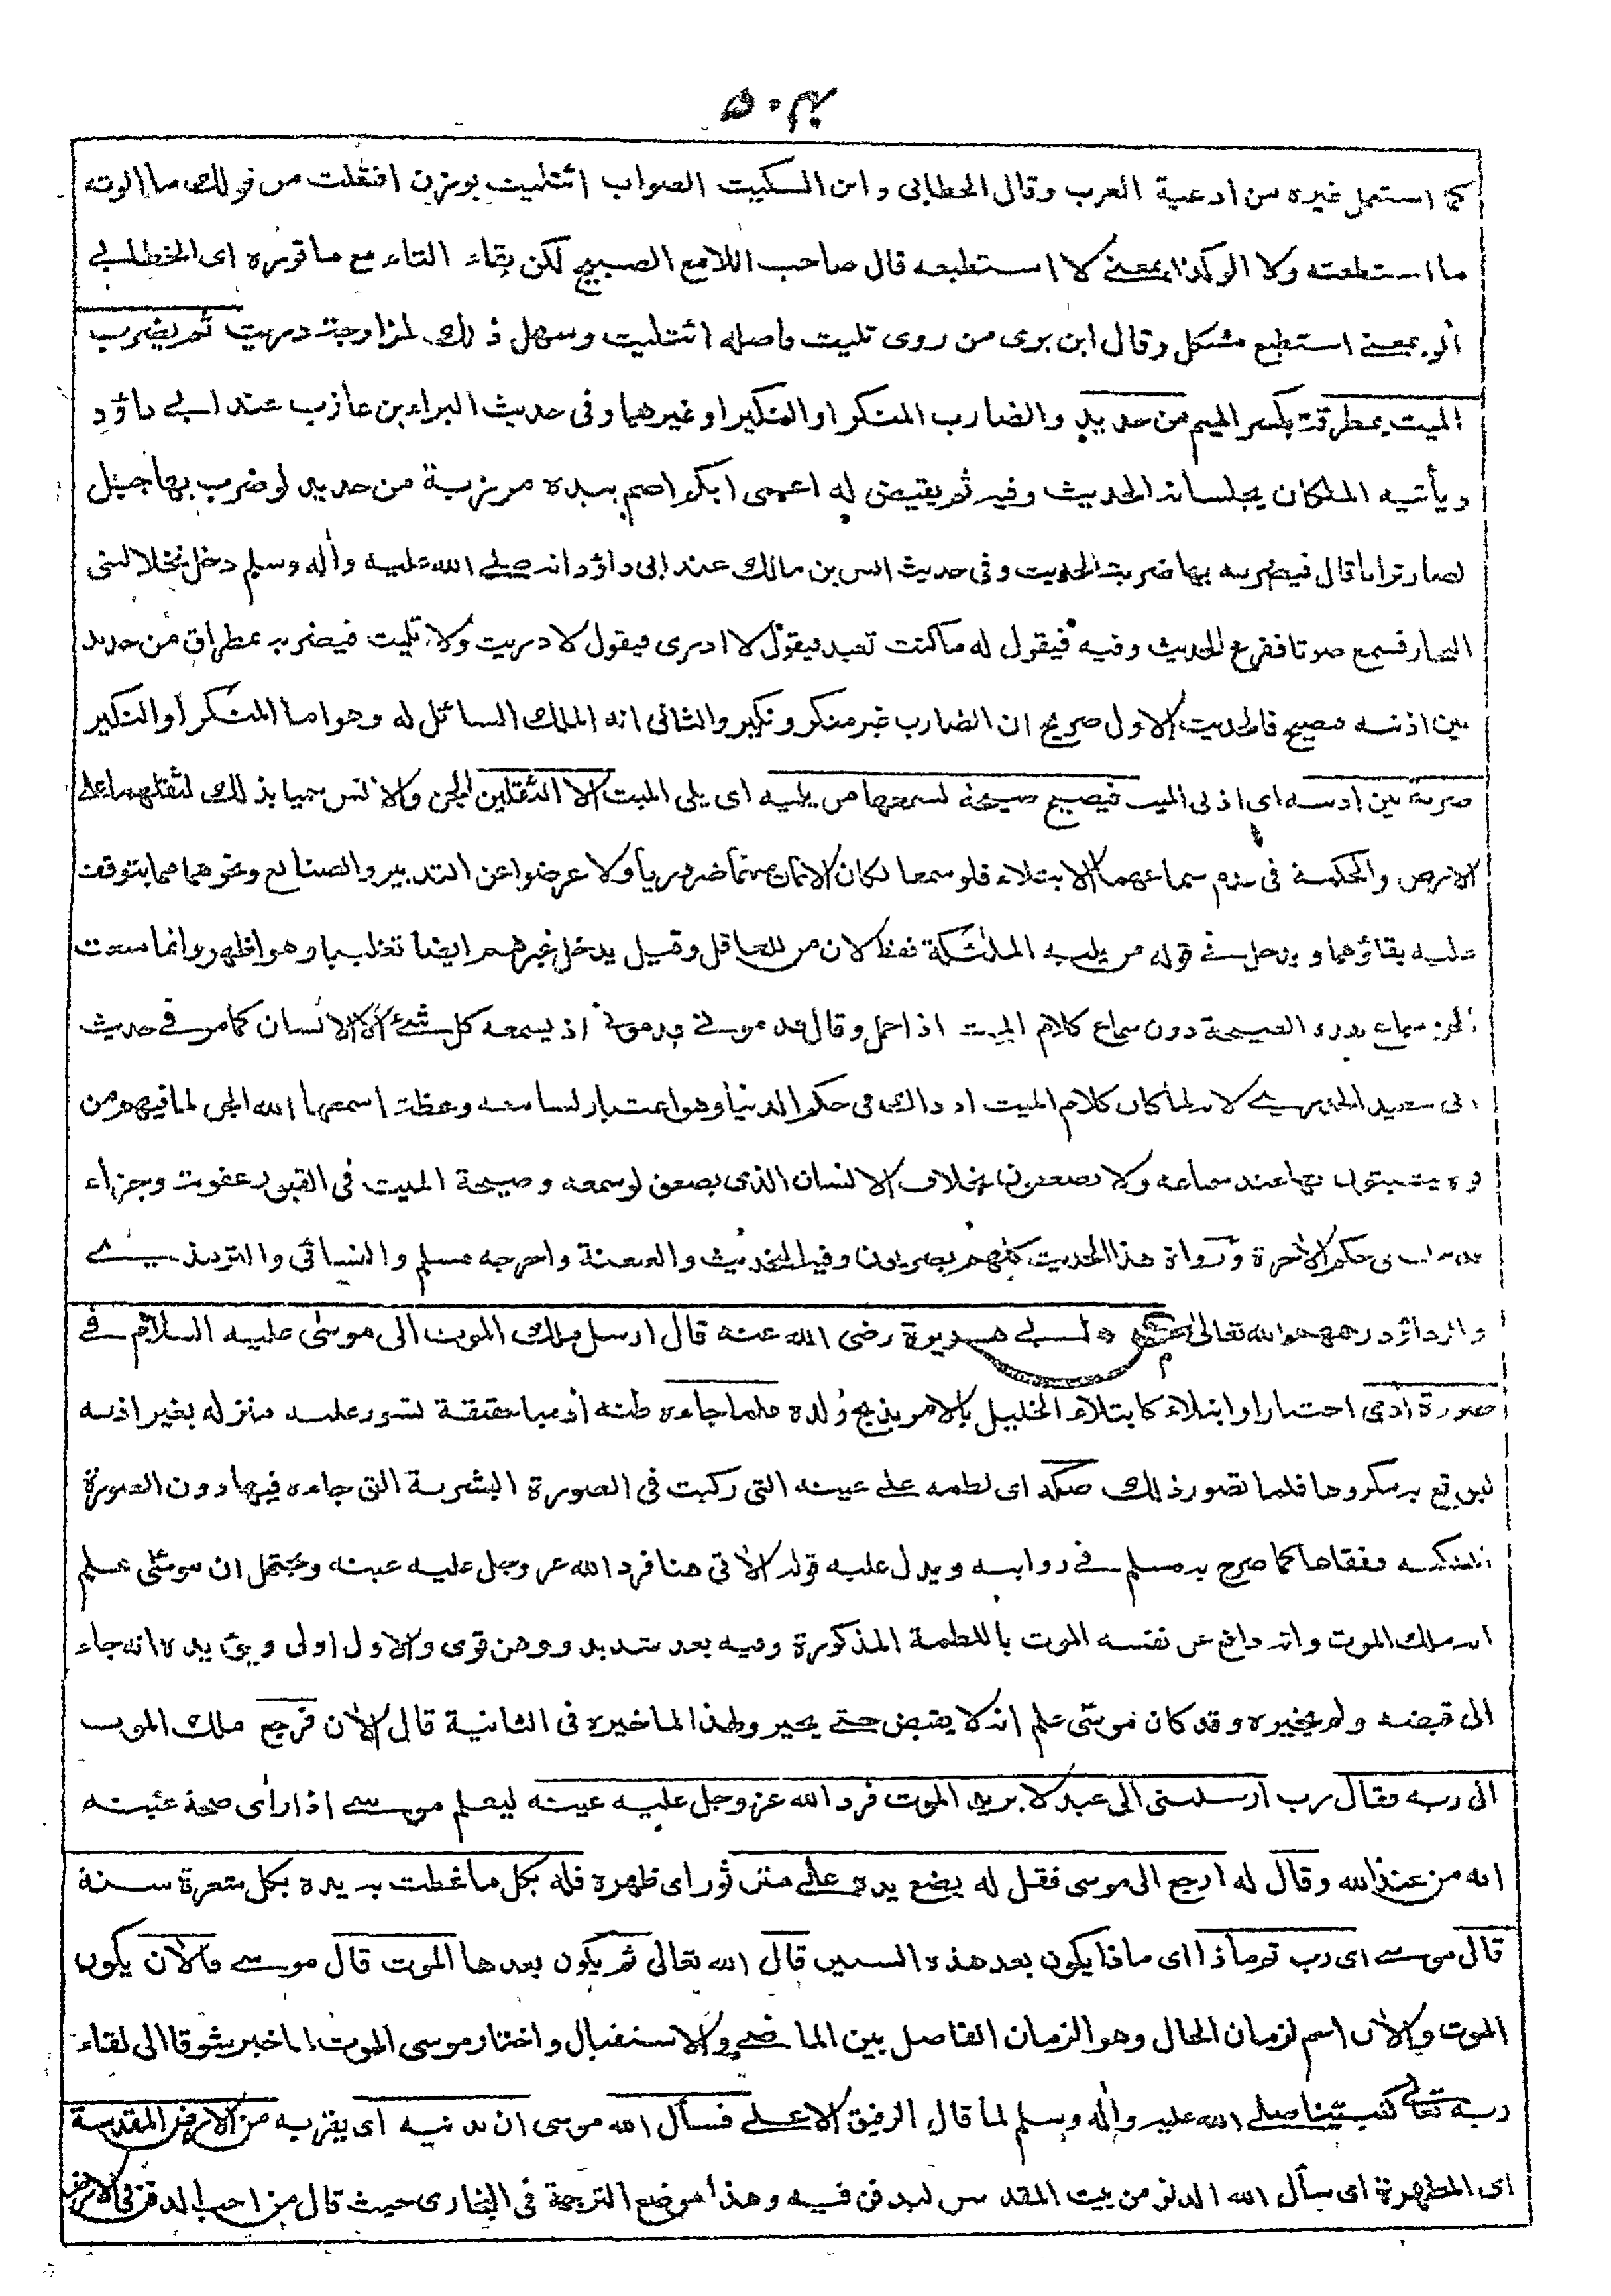 ٥٠٣
كما استعمل غيره من ادعية العرب وقال الخطابى وابن السكيت الصواب ائتليت بوزن افتعلت من قولك ما الوته
ما استطعته ولا الو كذا بمعنى لا استطيعه قال صاحب اللامع الصبيح لكن بقاء التاء مع ما قرره اى الخطابى
الو بمعنى استطيع مشكل وقال ابن برى من روى تليت فاصله ائتليت وسهل ذلك لمزاوجة دريت ثم يضرب
الميت بمطرقة بكسر الميم من حديد والضارب المنكر او النكير او غيرهما وفى حديث البراء بن عازب عند ابى داؤد
ويأتيه الملكان يجلسانه الحديث وفيه ثم يقيض له اعمى ابكم اصم بيده مرزبة من حديد لو ضرب بها جبل
لصار ترابا قال فيضربه بها ضربة الحديث وفى حديث انس بن مالك عند ابى داؤد انه صلى الله عليه وأله وسلم دخل نخلا لبنى
النجار فسمع صوتا ففزع الحديث وفيه فيقول له ما كنت تعبد فيقول لا ادرى فيقول لا دريت ولا تليت فيضربه بمطراق من حديد
بين اذنيه فيصيح فالحديث الاول صريح ان الضارب غير منكر ونكير والثانى انه الملك السائل له وهو اما المنكر أو النكير
ضربة بين اذنيه اى اذنى الميت فيصيح صيحة يسمعها من يليه اى يلى الميت الا الثقلين الجن والانس سميا بذلك لثقلهما على
الارض والحكمة فى عدم سماعهما الابتلاء فلو سمعا لكان الايمان منهما ضروريا ولا عرضوا عن التدبير والصنائع ونحوهما مما يتوقف
عليه بقاؤهما ويدخل فى قوله من يليه الملئكة فقط لان من للعاقل وقيل يدخل غيرهم ايضا تغليبا وهو اظهر وانما منعت
الجن سماع هذه الصيحة دون سماع كلام الميت اذا حمل وقال قدمونى قدمونى اذ يسمعه كل شئ الا الانسان كما مر فى حديث
ابى سعيد الخدرى لانه لما كان كلام الميت اذ ذاك فى حكم الدنيا وهو اعتبار لسامعه وعظة اسمعها الله الجن لما فيهم من
قوة يثبتون بها عند سماعه ولا يصعقون بخلاف الانسان الذى يصعق لو سمعه وصيحة الميت فى القبر عقوبة وجزاء
فدخلت فى حكم الأخرة ورواة هذا الحديث كلهم بصريون وفيه التحديث والعنعنة واخرجه مسلم والنسائى والترمذى
وابو داؤد رحمهم الله تعالى عن ابى هريرة رضى الله عنه قال ارسل ملك الموت الى موسى عليه السلام فى
صورة أدمى اختبارا وابتلاء كابتلاء الخليل بالامر بذبح ولده فلما جاءه ظنه أدميا حقيقة تسور عليه منزله بغير اذنه
ليوقع به مكروها فلما تصور ذلك صكه اى لطمه على عينه التى ركبت فى الصورة البشرية التى جاءه فيها دون الصورة
الملكية ففقاها كما صرح به مسلم فى روايته ويدل عليه قوله الأتى هنا فرد الله عز وجل عليه عينه ويحتمل ان موسى علم
انه ملك الموت وانه دافع عن نفسه الموت باللطمة المذكورة وفيه بعد شديد ووهن قوى والاول اولى ويؤيده انه جاء
الى قبضه ولم يخيره وقد كان موسى علم انه لا يقبض حتى يخير ولهذا لما خيره فى الثانية قال الأن فرجع ملك الموت
الى ربه فقال رب ارسلتنى الى عبد لا يريد الموت فرد الله عز وجل عليه عينه ليعلم موسى اذا رأى صحة عينه
انه من عند الله وقال له ارجع الى موسى فقل له يضع يده على متن ثور اى ظهره فله بكل ما غطت به يده بكل شعرة سنة
قال موسى اى رب ثم ماذا اى ماذا يكون بعد هذه السنين قال الله تعالى ثم يكون بعدها الموت قال موسى فالأن يكون
الموت والأن اسم لزمان الحال وهو الزمان الفاصل بين الماضى والاستقبال واختار موسى الموت لما خير شوقا الى لقاء
ربه تعالى كنبينا صلى الله عليه وأله وسلم لما قال الرفيق الاعلى فسأل الله موسى ان يدنيه اى يقربه من الارض المقدسة
اى المطهرة اى سأل الله الدنو من بيت المقدس ليدفن فيه وهذا موضع الترجمة فى البخارى حيث قال من احب الدفن فى الارض